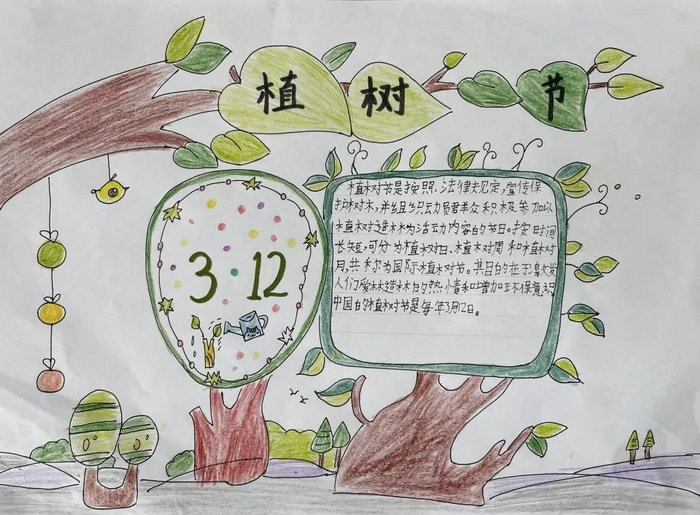 植树节
3 12
植树节是按照，法律规定，宣传保
护树木，并组织动员群众积极参加以
植树造林为活动内容的节日。按时间
长短，可分为植树日、植树周和植树
月，共称为国际植树节。其目的在于激发
人们爱林造林的热情和增加环保意识
中国的植树节是每年3月12日。